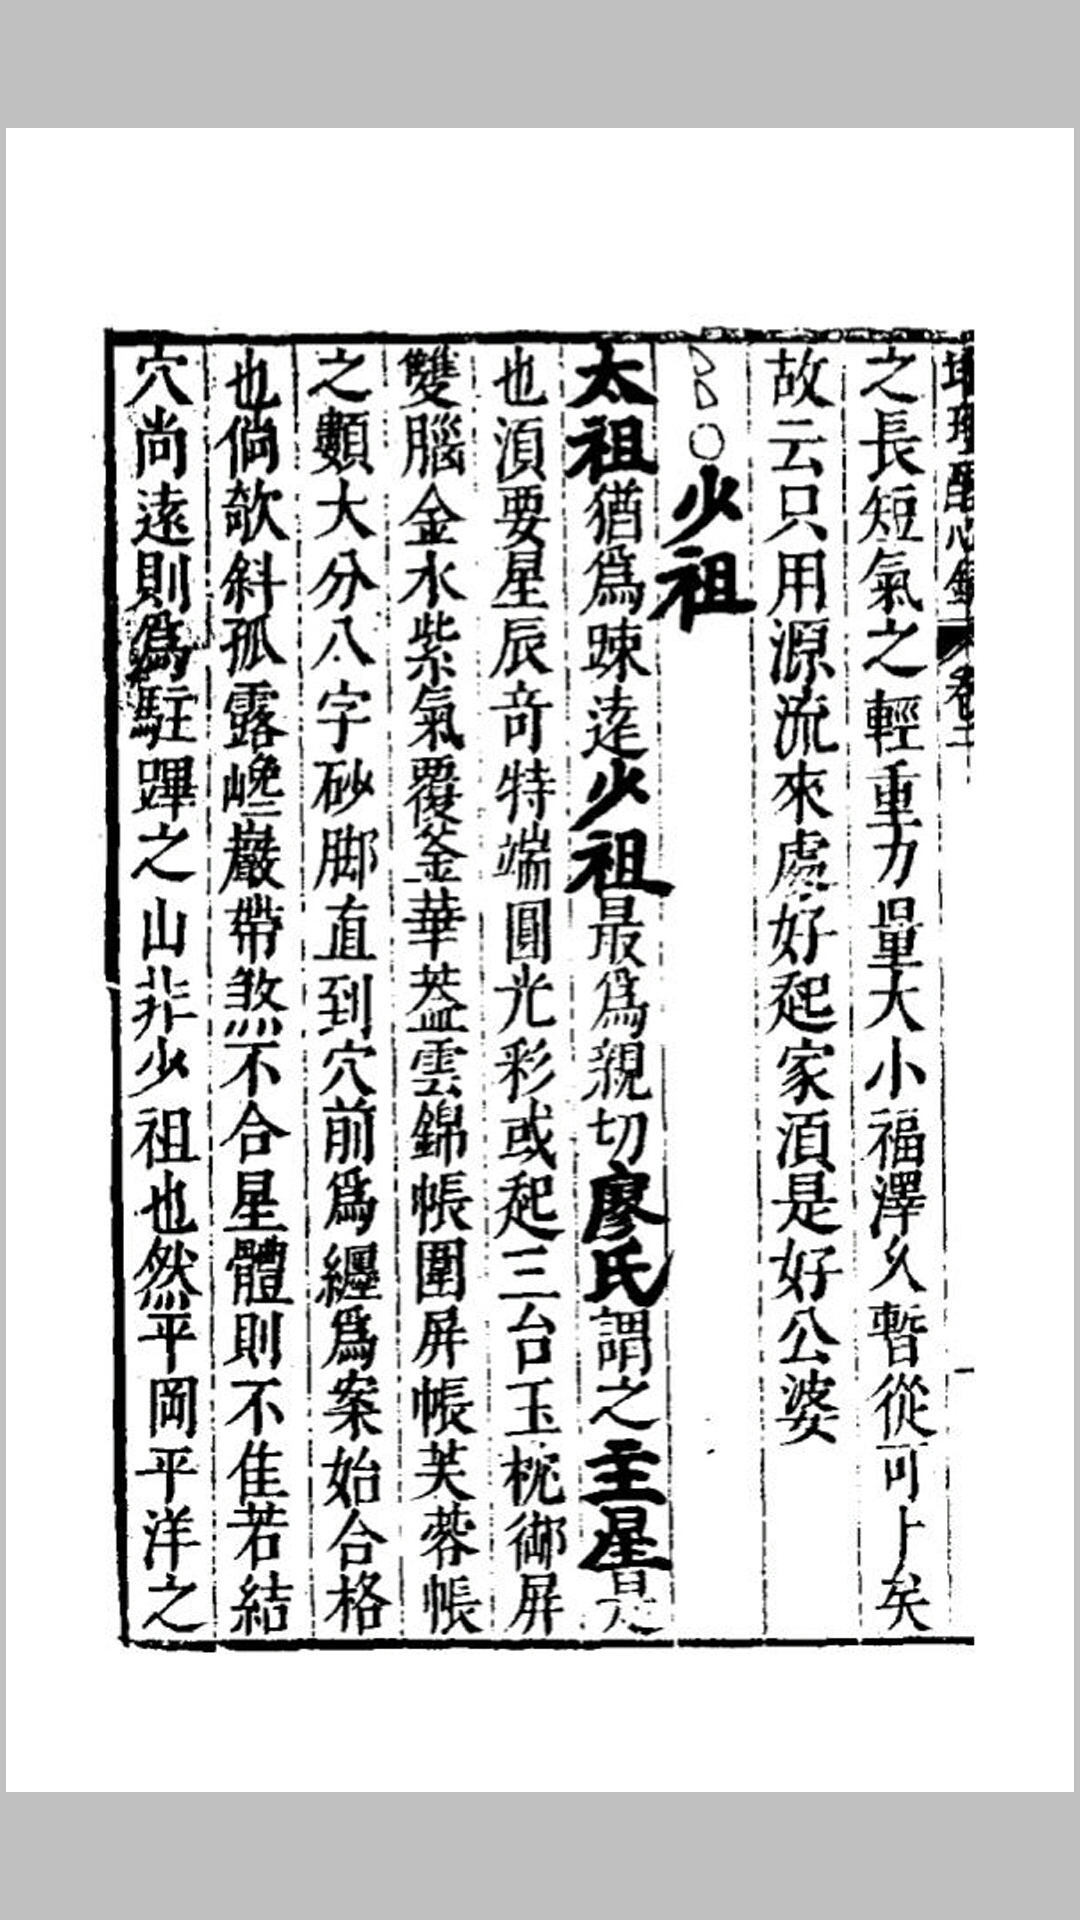 之長短氣之輕重力量大小福澤乆暫從可卜矣
故云只用源流來處好起家湏是好公婆
○少祖
太祖猶爲踈逺少祖最爲親切廖氏謂之主星是
也湏要星辰竒特端圓光彩或起三台玉枕御屏
雙腦金水紫氣覆釜華葢雲錦帳圍屏帳芙蓉帳
之類大分八字砂脚直到穴前爲纒爲案始合格
也倘欹斜孤露巉巖帶煞不合星體則不佳若結
穴尚遠則爲駐蹕之山非少祖也然平岡平洋之